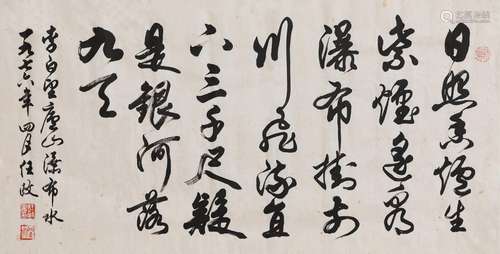 日照香爐生
紫煙遙看
瀑布掛前
川飛流直
下三千尺疑
是銀河落
九天
李白望廬山瀑布水
一九七六年四月任政